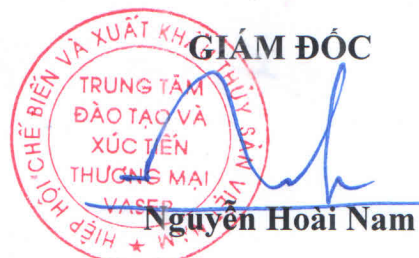 GIÁM ĐỐC
HIỆP HỘI CHẾ BIẾN VÀ XUẤT KHẨU THỦY SẢN VIỆT NAM
TRUNG TÂM
ĐÀO TẠO VÀ
XÚC TIẾN
THƯƠNG MẠI
VASEP
Nguyễn Hoài Nam